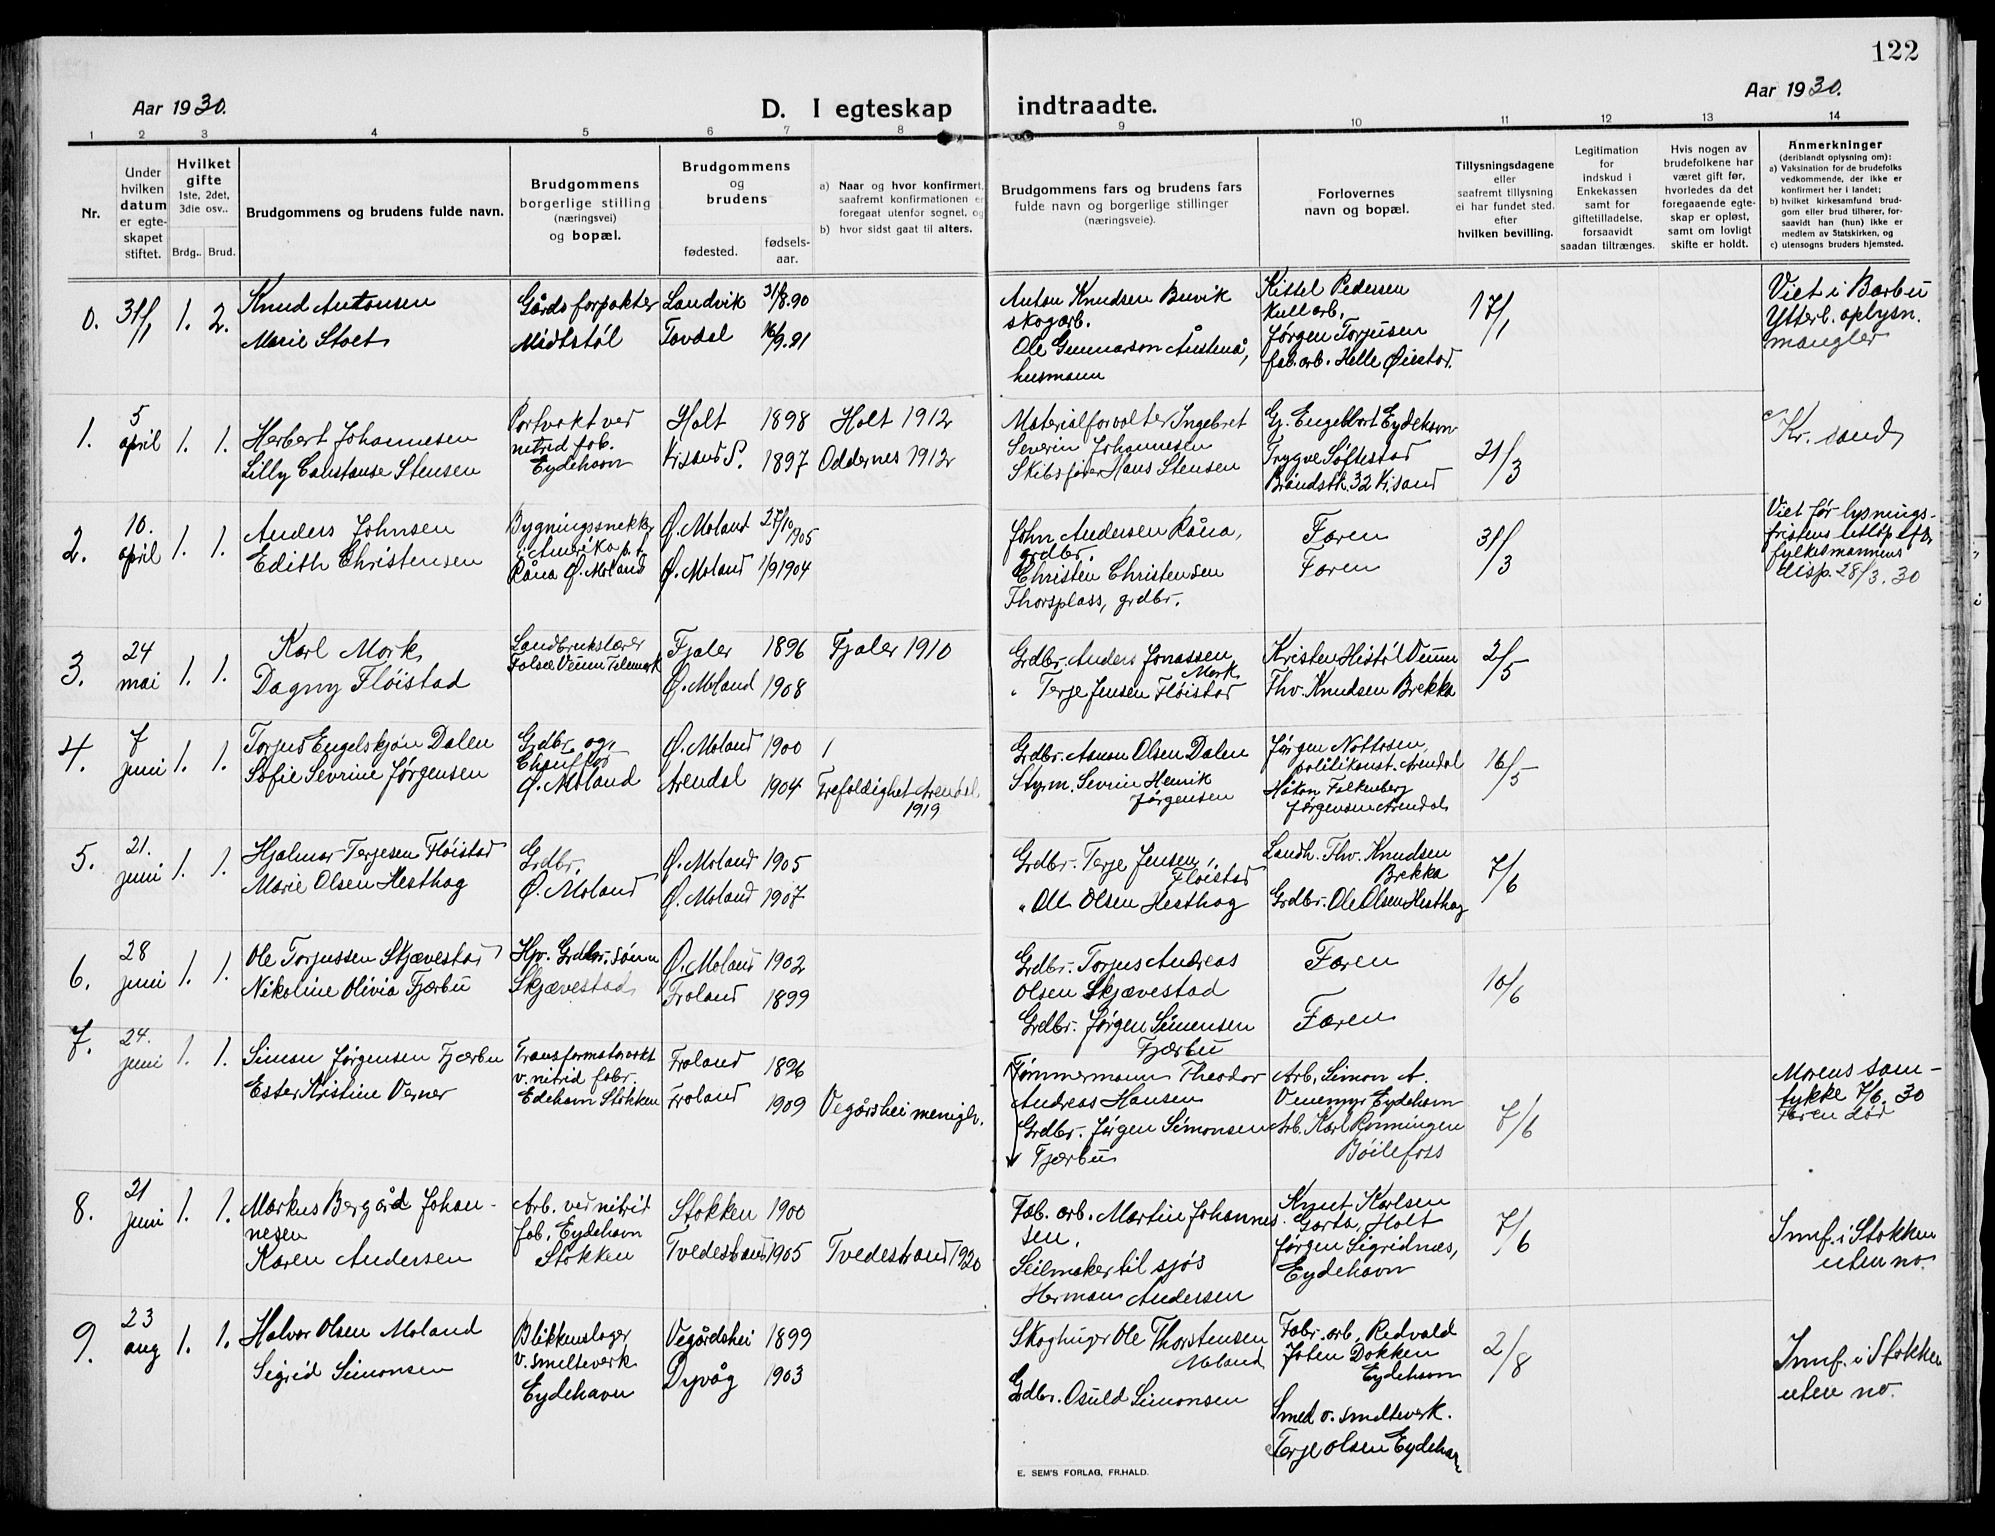 122
Aar 1930.
D. I egteskap indtraadte.
Aar 1930.
1 2 3 4 5 6 7 8 9 10 11 12 13 14
Nr.
Under
hvilken
datum
er egte-
skapet
stiftet.
Hvilket
gifte
1ste, 2det,
3die osv..
Brdg.. Brud.
Brudgommens og brudens fulde navn.
Brudgommens
borgerlige stilling
(næringsvei)
og bopæl.
Brudgommens
og
brudens
fødested.
fødsels-
aar.
a) Naar og hvor konfirmert,
saafremt konfirmationen er
foregaat utenfor sognet, og
b) hvor sidst gaat til alters.
Brudgommens fars og brudens fars
fulde navn og borgerlige stillinger
(næringsveie).
Forlovernes
navn og bopæl.
Tillysningsdagene
eller
saafremt tillysning
ei har fundet sted.
efter
hvilken bevilling.
Legitimation
for
indskud i
Enkekassen
samt for
giftetilladelse,
forsaavidt
saadan tiltrænges.
Hvis nogen av
brudefolkene har
været gift før,
hvorledes da det
foregaaende egte-
skap er opløst,
samt om lovligt
skifte er holdt.
Anmerkninger
(deriblandt oplysning om):
a) Vaksination for de brudefolks
vedkommende, der ikke er
konfirmert her i landet;
b) hvilket kirkesamfund brud-
gom eller brud tilhører, for-
saavidt han (hun) ikke er
medlem av Statskirken, og
c) utensogns bruders hjemsted.
0. 31/1 1. 2.
Knud Antonsen
Marie Stoet
Gårdsforpakter
Midtstøl
Landvik 31/8.90
Tovdal 16/9.91
Anton Knudsen Buvik
skogarb.
Ole Gunnarson Austenå,
husmann
Kittel Pedersen
Kullarb.
Jørgen Torjusen
fab.arb. Helle Øiestad.
17/1
Viet i Barbu
Ytterl. oplysn.
mangler
1. 5 april 1. 1.
Herbert Johannesen
Lilly Constanse Stensen
Portvakt ved
nitrid fab.
Eydehavn
Holt 1898 Holt 1912
Krsand S. 1897 Oddernes 1912
Materialforvalter Ingebret
Severin Johannesen
Skibsfører Hans Stensen
G. Engelbart Eydehavn
Trygve Søftestad
Brøndstk. 32 Krsand
21/3
Kr.sand
2. 10. april 1. 1.
Anders Johnsen
Edith Christensen
Bygningssnekker
i Amerika p.t.
Råna Ø. Moland
Ø. Moland 27/10 1905
Ø. Moland 1/9 1904
John Andersen Råna,
grdbr.
Christen Christensen
Thorsplass, grdbr.
Faren
Faren
31/3
Viet før lysnings-
fristens utløp efter
fylkesmannens
disp. 28/3.30
3. 24 mai 1. 1.
Karl Mork
Dagny Fløistad
Landbrukslærer
Folsæ Veum Telemark
Fjaler 1896 Fjaler 1910
Ø. Moland 1908
Grdbr. Anders Jonassen
Mork
" Terje Jensen Fløistad
Kristen Histøl Veum
Thv. Knudsen Brekka
2/5
4. 7 juni 1. 1.
Torjus Engelskjøn Dalen
Sofie Sevrine Jørgensen
Grdbr. og
Chauffør
Ø. Moland
Ø. Moland 1900
Arendal 1904 Trefoldighet Arendal
1919
Grdbr. Asmon Olsen Dalen
Styrm. Sevrin Henrik
Jørgensen
Jørgen Nottosen,
politikonst. Arendal
Håkon Falkenberg
Jørgensen Arendal
16/5
5. 21. juni 1. 1.
Hjalmar Terjesen Fløistad
Marie Olsen Hesthag
Grdbr.
Ø. Moland
Ø. Moland 1905
Ø. Moland 1907
Grdbr. Terje Jensen
Fløistad
" Ole Olsen Hesthag
Landh. Thv. Knudsen
Brekka
Grdbr. Ole Olsen Hesthag
7/6
6. 28 juni 1. 1.
Ole Torjussen Skjævestad
Nikoline Olivia Fjærbu
Hpr. Grdbr. sønn
Skjævestad
Ø. Moland 1902
Froland 1899
Grdbr. Torjus Andreas
Olsen Skjævestad
Grdbr. Jørgen Simensen
Fjærbu
Faren
Faren
10/6
7. 24. juni 1. 1.
Simon Jørgensen Fjærbu
Ester Kristine Verner
Transformatorvakt
v. nitrid fabr.
Edehavn Stokken
Froland 1896
Froland 1909 Vegårshei menighet.
Tømmermann Theodor
Andreas Hansen
Grdbr. Jørgen Simonsen
Fjærbu
Arb. Simon A.
Venemyr Eydehavn
Arb. Karl Rønningen
Bøilefoss
7/6
Morens sam-
tykke 7/6.30
Faren død
8. 21 juni 1. 1.
Markus Bergård Johan-
nesen
Karen Andersen
Arb. ved nitrid
fab. Eydehavn
Stokken
Stokken 1900
Tvedestrand 1905 Tvedestrand 1920
Fab. arb. Martin Johannes-
sen,
Seilmaker til sjøs
Herman Andersen
Knut Karlsen
Garta, Holt
Jørgen Sigridnæs,
Eydehavn
7/6
Innf. i Stokken
uten no.
9. 23 aug 1. 1.
Halvor Olsen Moland
Sigrid Simonsen
Blikkenslager
v. smelteverk
Eydehavn
Vegårdshei 1899
Dypvåg 1903
Skoghuger Ole Thorstensen
Moland
Grdbr. Osuld Simonsen
Fabr. arb. Redvald
Joten Dokken
Eydehavn
Smed v. smelteverk.
Terje Olsen Eydehavn
2/8
Innf. i Stokken
uten no.
E. SEM'S FORLAG, FR.HALD.